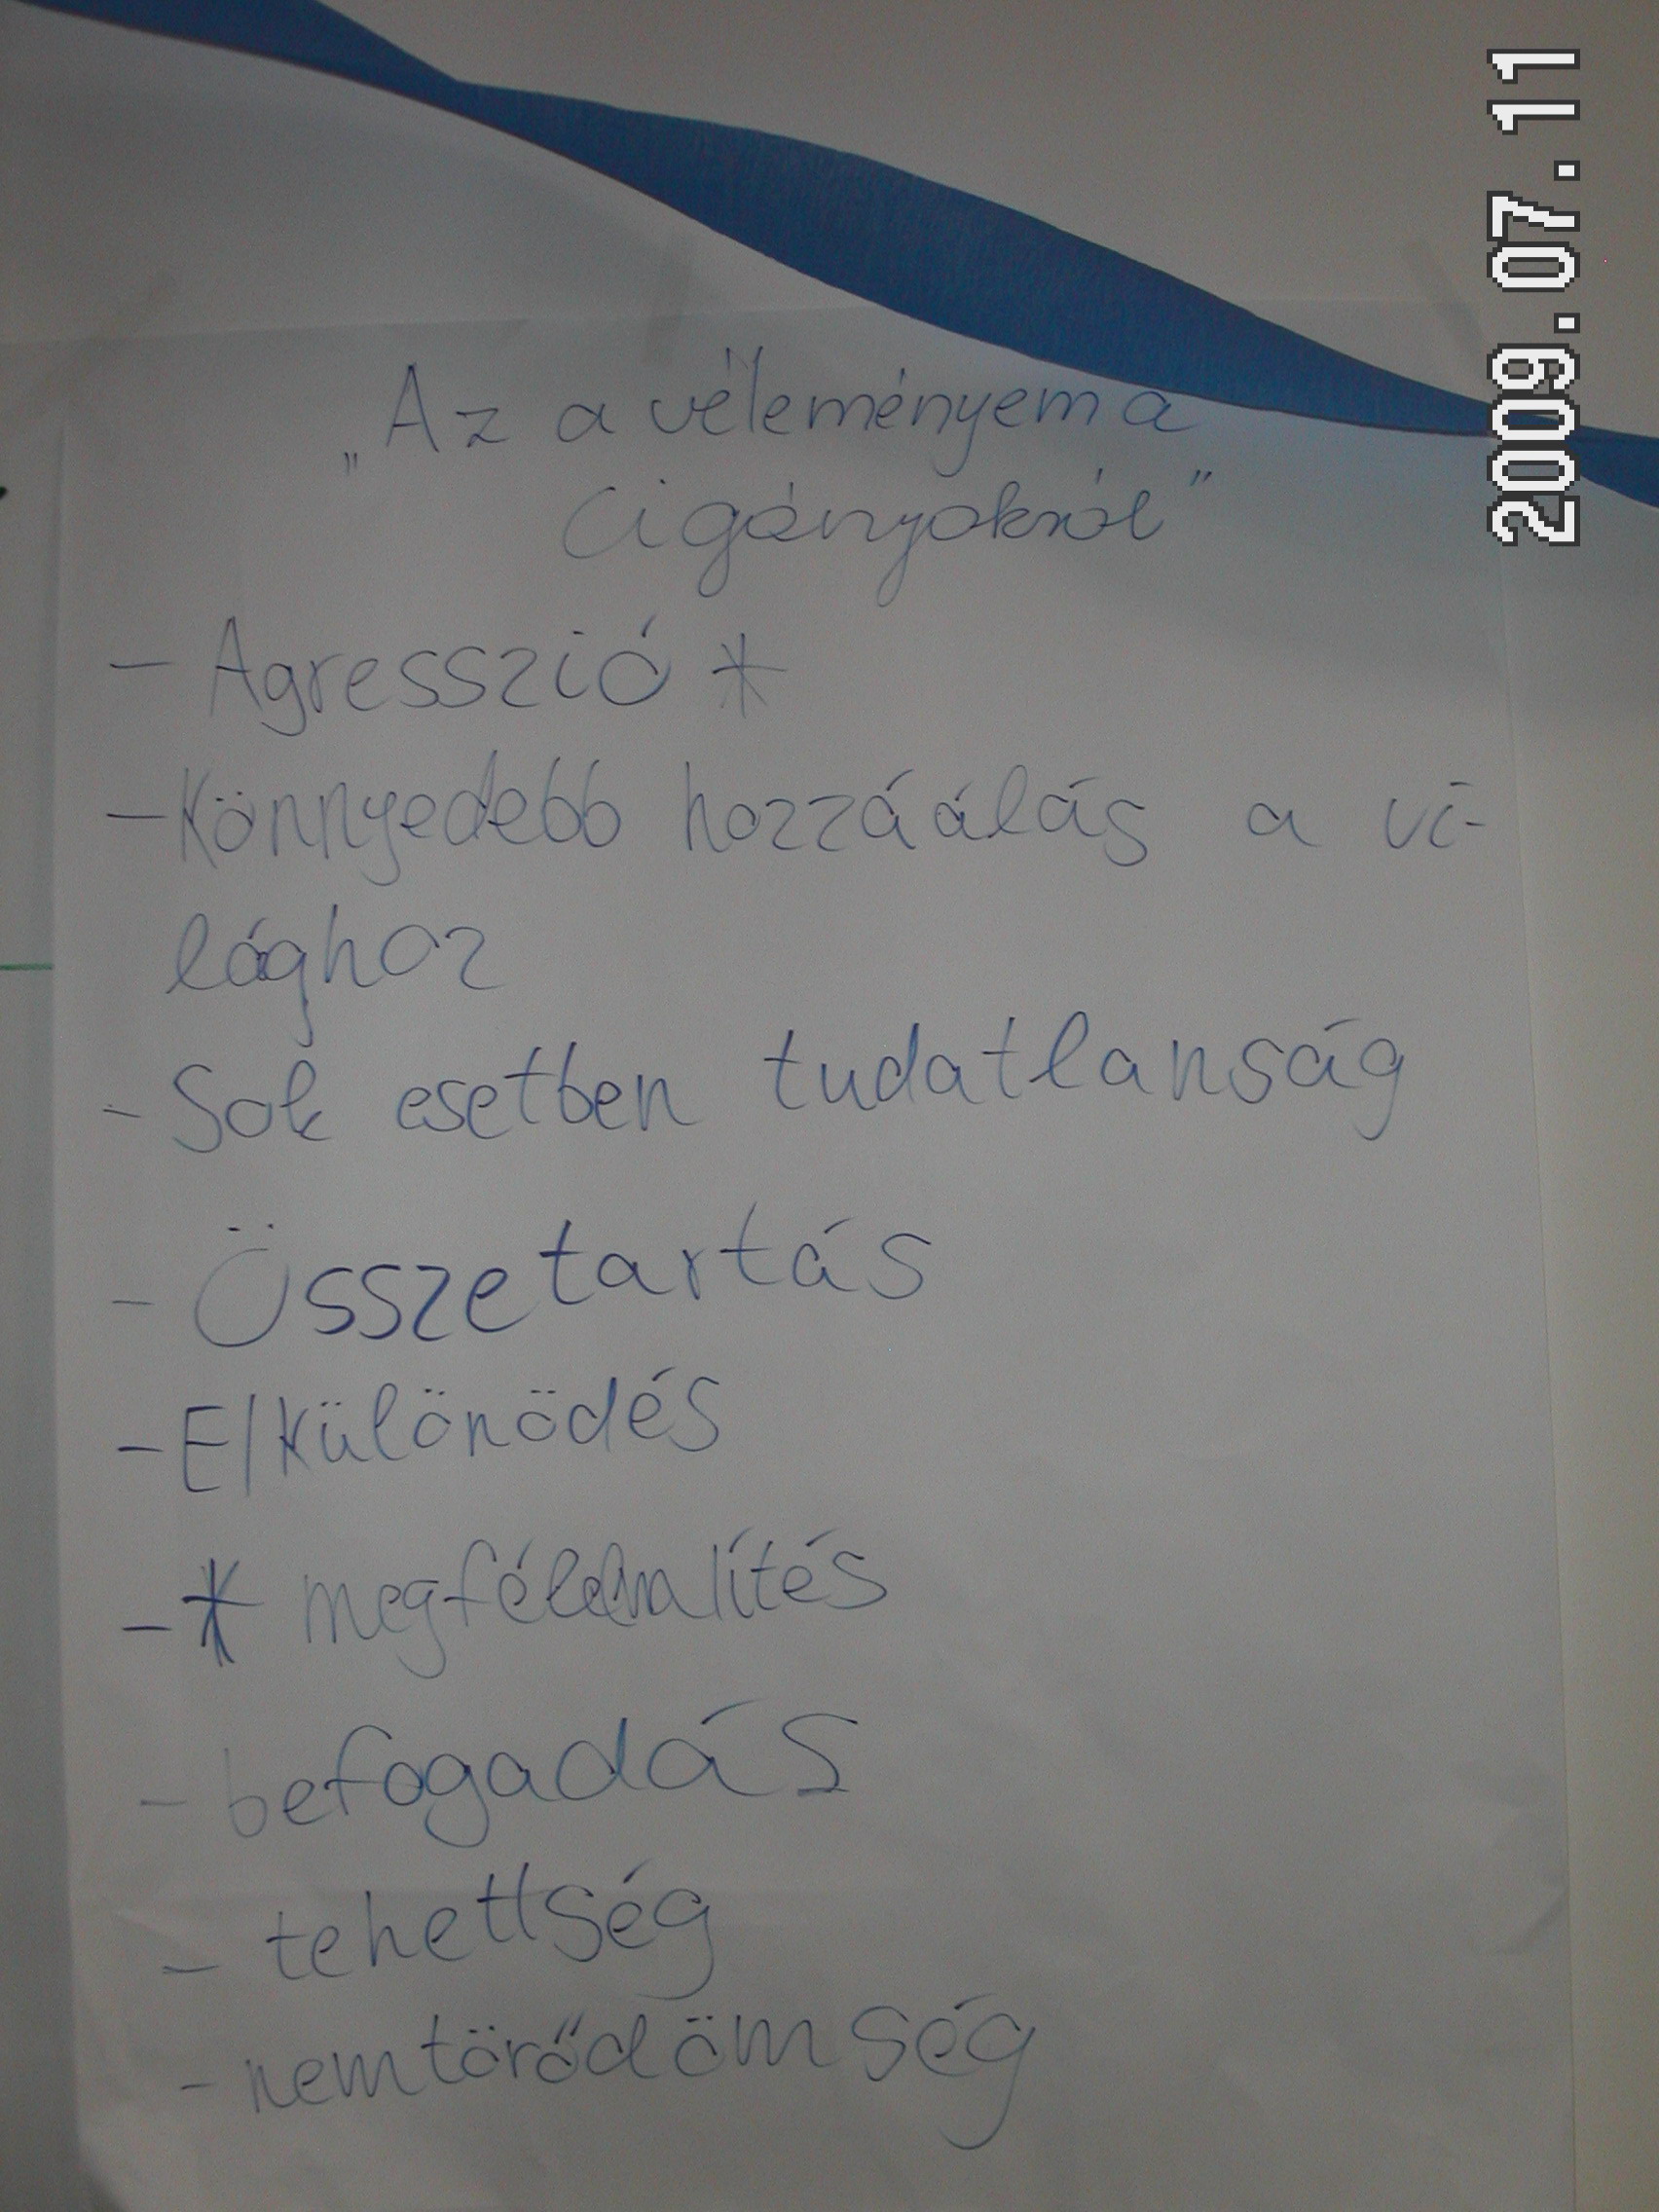 „Az a véleményem a
Cigányokról”
- Agresszió *
- Könnyedebb hozzáálás a vi-
lághoz
- Sok esetben tudatlanság
- Összetartás
- Elkülönödés
- * megfélemlítés
- befogadás
- tehettség
- nemtörődömség
2009.07.11